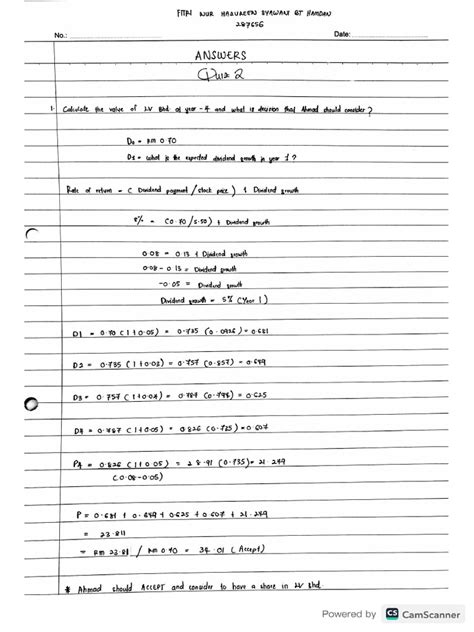 FITRI NUR HAQUREEN SYAWANI BT HAMDAN
287656
No.:
Date:
ANSWERS
Quiz 2
1. Calculate the value of LV Bhd at year-4 and what is decision that Ahmad should consider?
D₀ = RM 0.70
D₅ = what is the expected dividend growth in year 1?
Rate of return = ( Dividend payment / stock price ) + Dividend growth
8% = (0.70 / 5.50) + Dividend growth
0.08 = 0.13 + Dividend growth
0.08 - 0.13 = Dividend growth
-0.05 = Dividend growth
Dividend growth = 5% (Year 1)
D1 = 0.70 (1+0.05) = 0.735 (0.0926) = 0.681
D2 = 0.735 (1+0.03) = 0.757 (0.857) = 0.649
D3 = 0.757 (1+0.04) = 0.787 (0.794) = 0.625
D4 = 0.787 (1+0.05) = 0.826 (0.735) = 0.607
P4 = 0.826 (1+0.05) = 28.91 (0.735) = 21.249
(0.08-0.05)
P = 0.681 + 0.649 + 0.625 + 0.607 + 21.249
= 23.811
= RM 23.81 / RM 0.70 = 34.01 (Accept)
* Ahmad should ACCEPT and consider to have a share in LV Bhd.
Powered by CS CamScanner